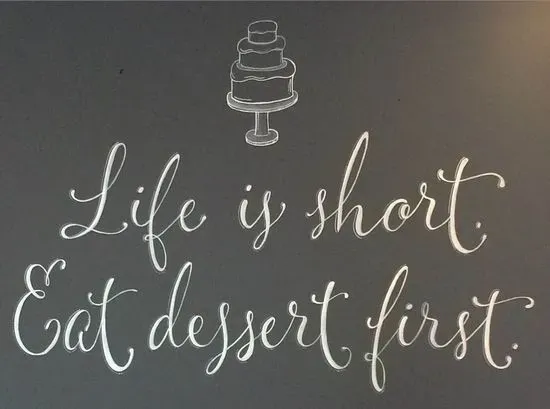 Life is short.
Eat dessert first.